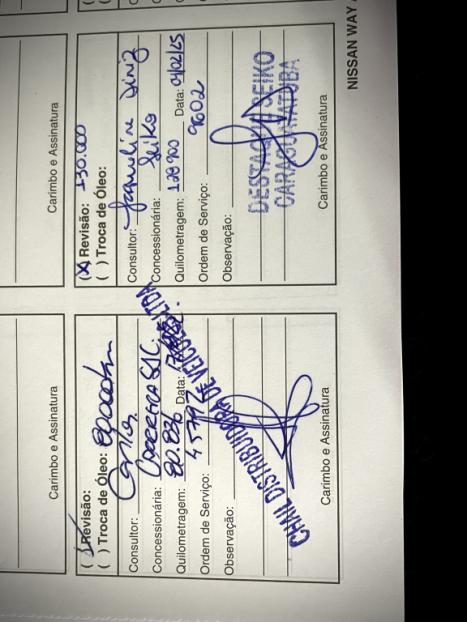 Carimbo e Assinatura
( ) Revisão:
( ) Troca de Óleo:
Consultor: Carlos
Concessionária:
Quilometragem: 80.836 Data:
Ordem de Serviço: 45797
Observação:
CHAIL DISTRIBUIDORA DE VEICULOS LTDA
Carimbo e Assinatura
Carimbo e Assinatura
(X) Revisão: 130.000
( ) Troca de Óleo:
Consultor: Jaqueline Diniz
Concessionária: Seiko
Quilometragem: 128900 Data: 01/02/25
Ordem de Serviço: 9602
Observação:
DESTAQUE SEIKO
CARAGUATATUBA
Carimbo e Assinatura
NISSAN WAY